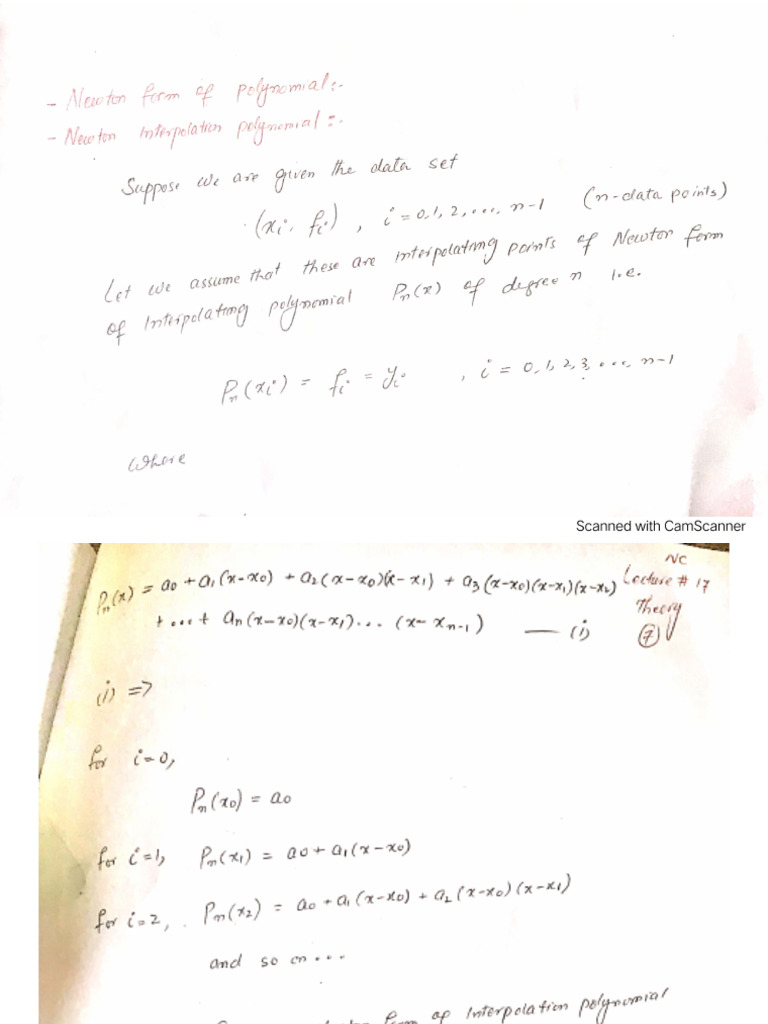 - Newton form of polynomial:-
- Newton Interpolation polynomial:-
Suppose we are given the data set
(xi, fi), i = 0,1,2,..., n-1 (n-data points)
Let we assume that these are interpolating points of Newton form
of Interpolating polynomial Pn(x) of degree n i.e.
Pn(xi) = fi = yi , i = 0,1,2,3,..., n-1
where
Scanned with CamScanner
NC
Lecture # 17
Theory
7
Pn(x) = a0 + a1(x-x0) + a2(x-x0)(x-x1) + a3(x-x0)(x-x1)(x-x2)
+ ... + an(x-x0)(x-x1)... (x-xn-1) — (i)
(i) =>
for i=0,
Pn(x0) = a0
for i=1, Pn(x1) = a0 + a1(x-x0)
for i=2, Pn(x2) = a0 + a1(x-x0) + a2(x-x0)(x-x1)
and so on...
form of Interpolation polynomial